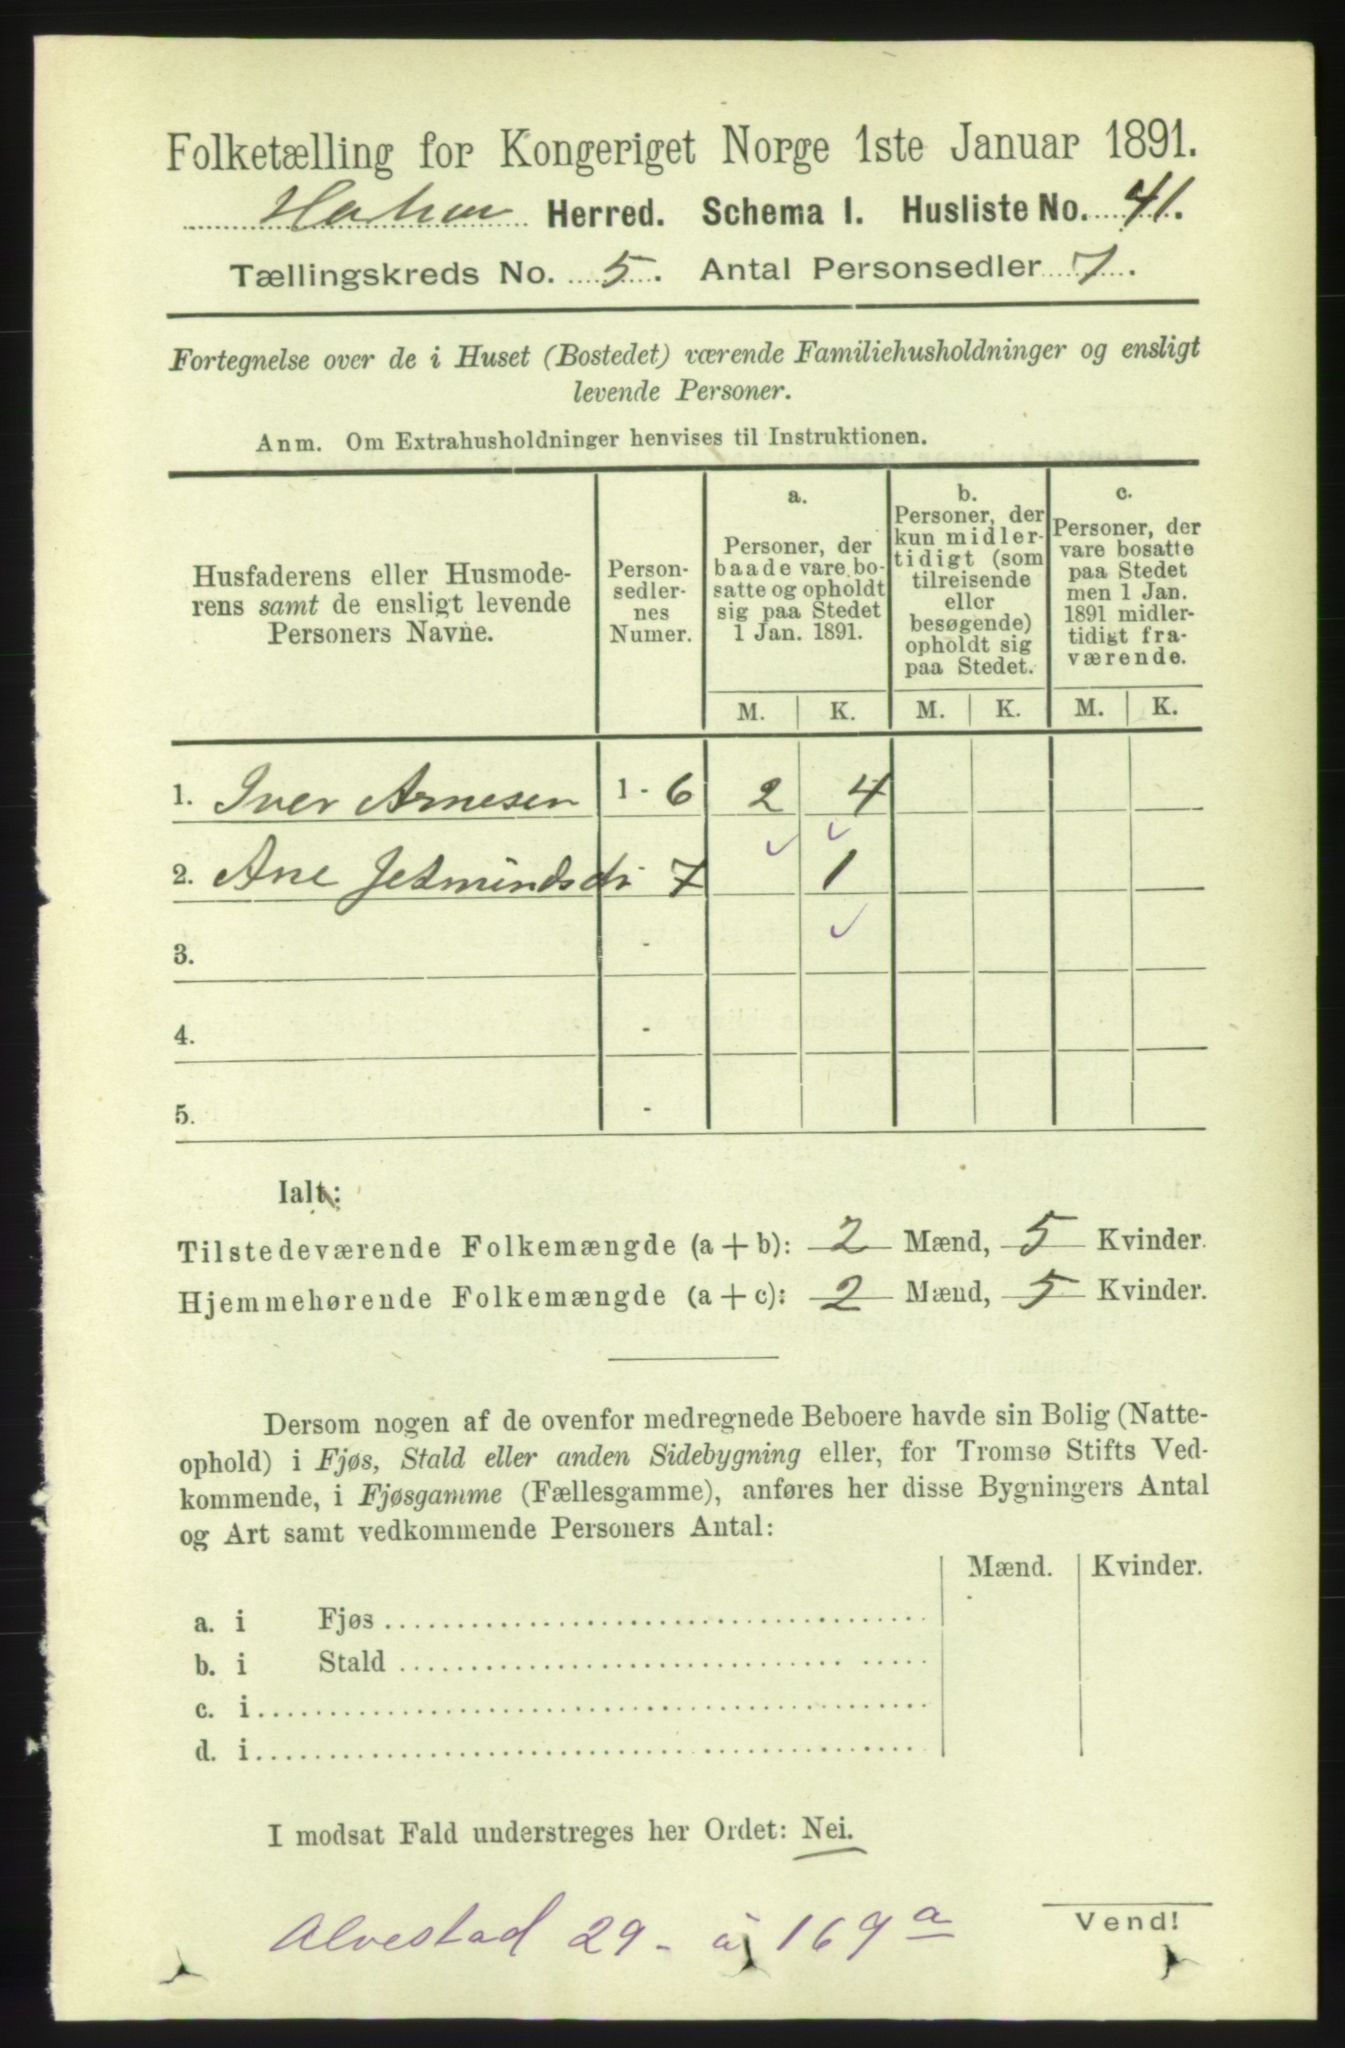 Folketælling for Kongeriget Norge 1ste Januar 1891.
Herred. Schema I. Husliste No. 41.
Tællingskreds No. 5. Antal Personsedler 7.
Fortegnelse over de i Huset (Bostedet) værende Familiehusholdninger og ensligt
levende Personer.
Anm. Om Extrahusholdninger henvises til Instruktionen.
Husfaderens eller Husmode-
rens samt de ensligt levende
Personers Navne.
Person-
sedler-
nes
Numer.
a.
Personer, der
baade vare bo-
satte og opholdt
sig paa Stedet
1 Jan. 1891.
b.
Personer, der
kun midler-
tidigt (som
tilreisende
eller
besøgende)
opholdt sig
paa Stedet.
c.
Personer, der
vare bosatte
paa Stedet
men 1 Jan.
1891 midler-
tidigt fra-
værende.
M. K. M. K. M. K.
1. Iver Arnesen 1 - 6 2 4
2. Ane Jetmundsdtr 7 1
3. -
4. -
5. -
Ialt:
Tilstedeværende Folkemængde (a + b): 2 Mænd, 5 Kvinder.
Hjemmehørende Folkemængde (a + c): 2 Mænd, 5 Kvinder.
Dersom nogen af de ovenfor medregnede Beboere havde sin Bolig (Natte-
ophold) i Fjøs, Stald eller anden Sidebygning eller, for Tromsø Stifts Ved-
kommende, i Fjøsgamme (Fællesgamme), anføres her disse Bygningers Antal
og Art samt vedkommende Personers Antal:
Mænd. Kvinder.
a. i Fjøs
b. i Stald
c. i
d. i
I modsat Fald understreges her Ordet: Nei.
Vend!
Alvestad 29 - a 169 a